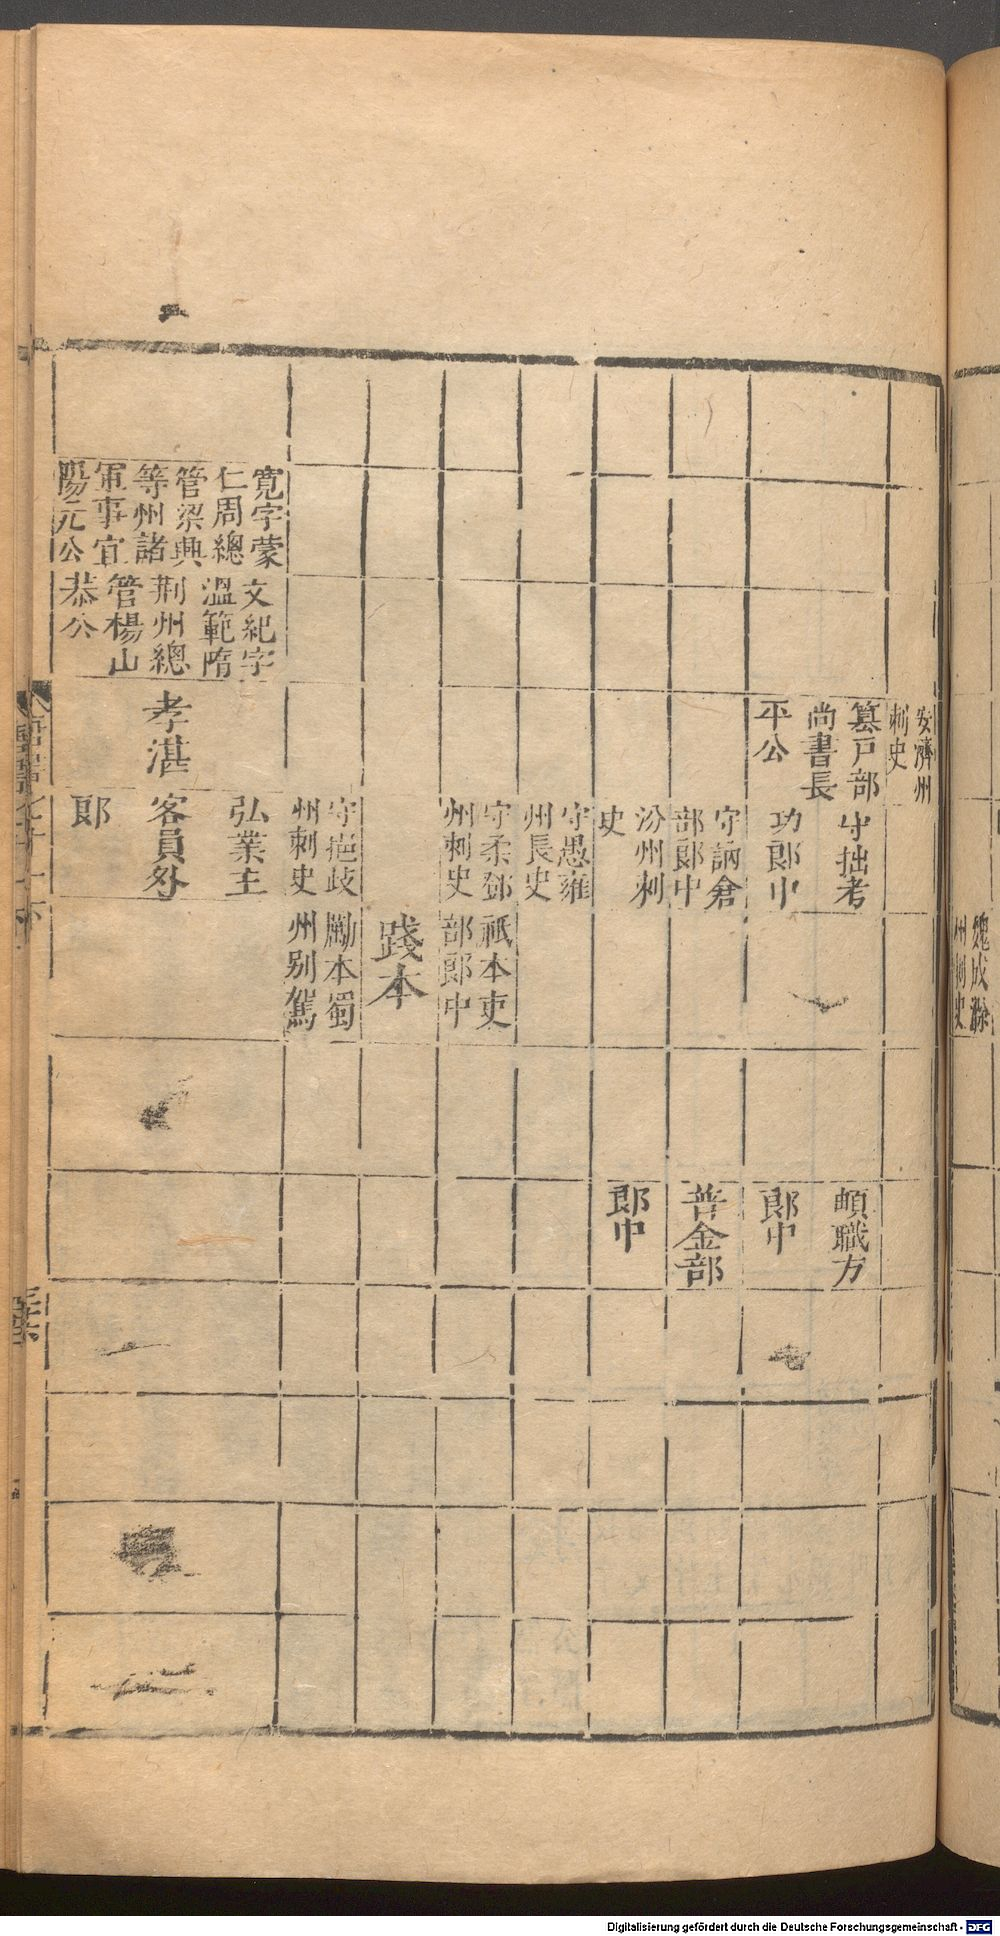 魏成滁
州刺史
安濟州
刺史
纂戶部
尚書長
平公
守拙考
功郎中
守訥倉
部郎中
汾州刺
史
守愚雍
州長史
守柔鄧
州刺史
守挹歧
州刺史
弘業主
客員外
郎
祗本吏
部郎中
踐本
勵本蜀
州别駕
頔職方
郎中
普金部
郎中
寛字蒙
仁周總
管梁興
等州諸
軍事宜
陽元公
文紀字
溫範隋
荆州總
管楊山
恭公
孝湛
Digitalisierung gefördert durch die Deutsche Forschungsgemeinschaft - DFG